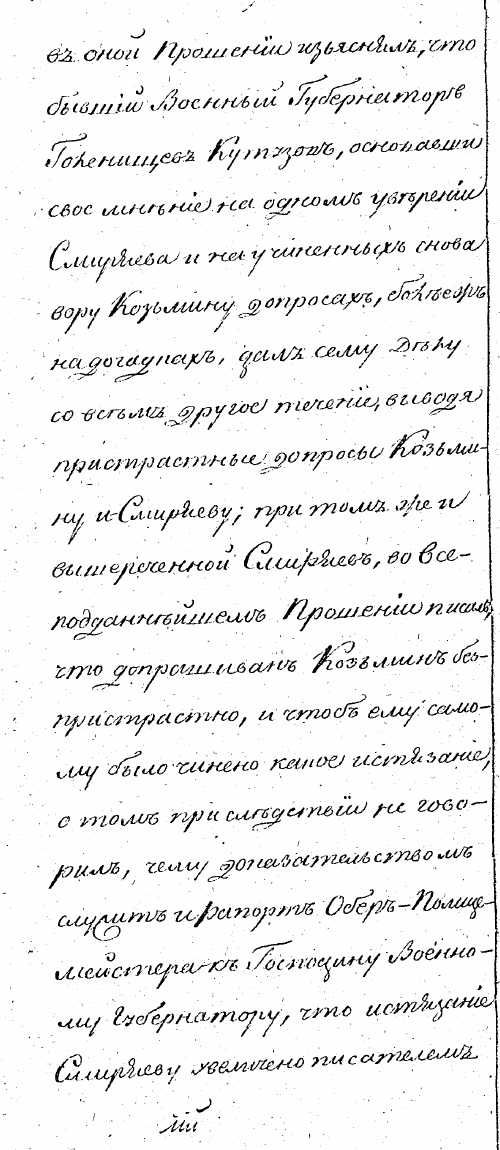 въ оной Прошенiи изъяснялъ, что
бывшiй Военный Губернаторъ
Голенищевъ Кутузовъ, основавши
свое мнѣнiе на одномъ увѣренiи
Смирнаева и на учиненныхъ снова
вору Козьмину допросахъ, болѣе жъ
на догадкахъ, далъ сему дѣлу
со всѣмъ другое теченiе, выводя
пристрастные допросы Козьми-
ну и Смирнаеву; при томъ же и
вышереченной Смирнаевъ, во все-
подданнѣйшемъ Прошенiи писалъ,
что допрашиванъ Козьминъ без-
пристрастно, и чтобъ ему само-
му было чинено какое истязанiе,
о томъ при слѣдствiи не гово-
рилъ, чему доказательствомъ
служитъ и рапортъ Оберъ-Полице-
мейстера къ Господину Военно-
му Губернатору, что истязанiе
Смирнаеву увеличено писателемъ